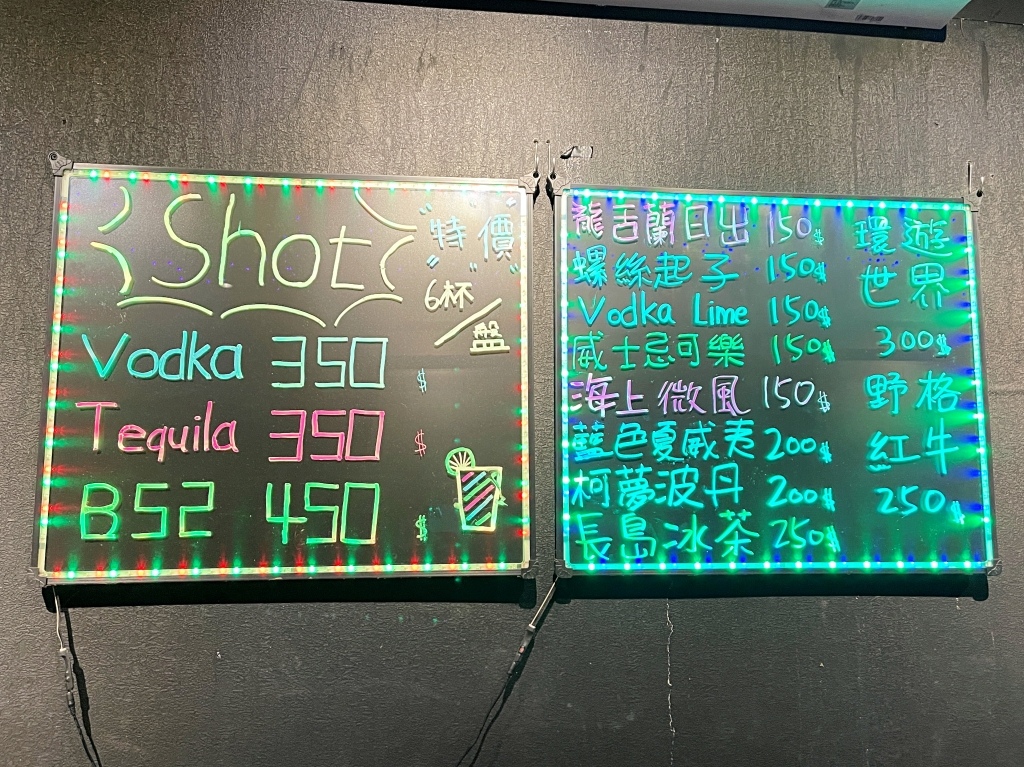 Shot
"特價"
6杯/盤
Vodka 350$
Tequila 350$
B52 450$
龍舌蘭日出 150$
螺絲起子 150$
Vodka Lime 150$
威士忌可樂 150$
海上微風 150$
藍色夏威夷 200$
柯夢波丹 200$
長島冰茶 250$
環遊
世界
300$
野格
紅牛
250$